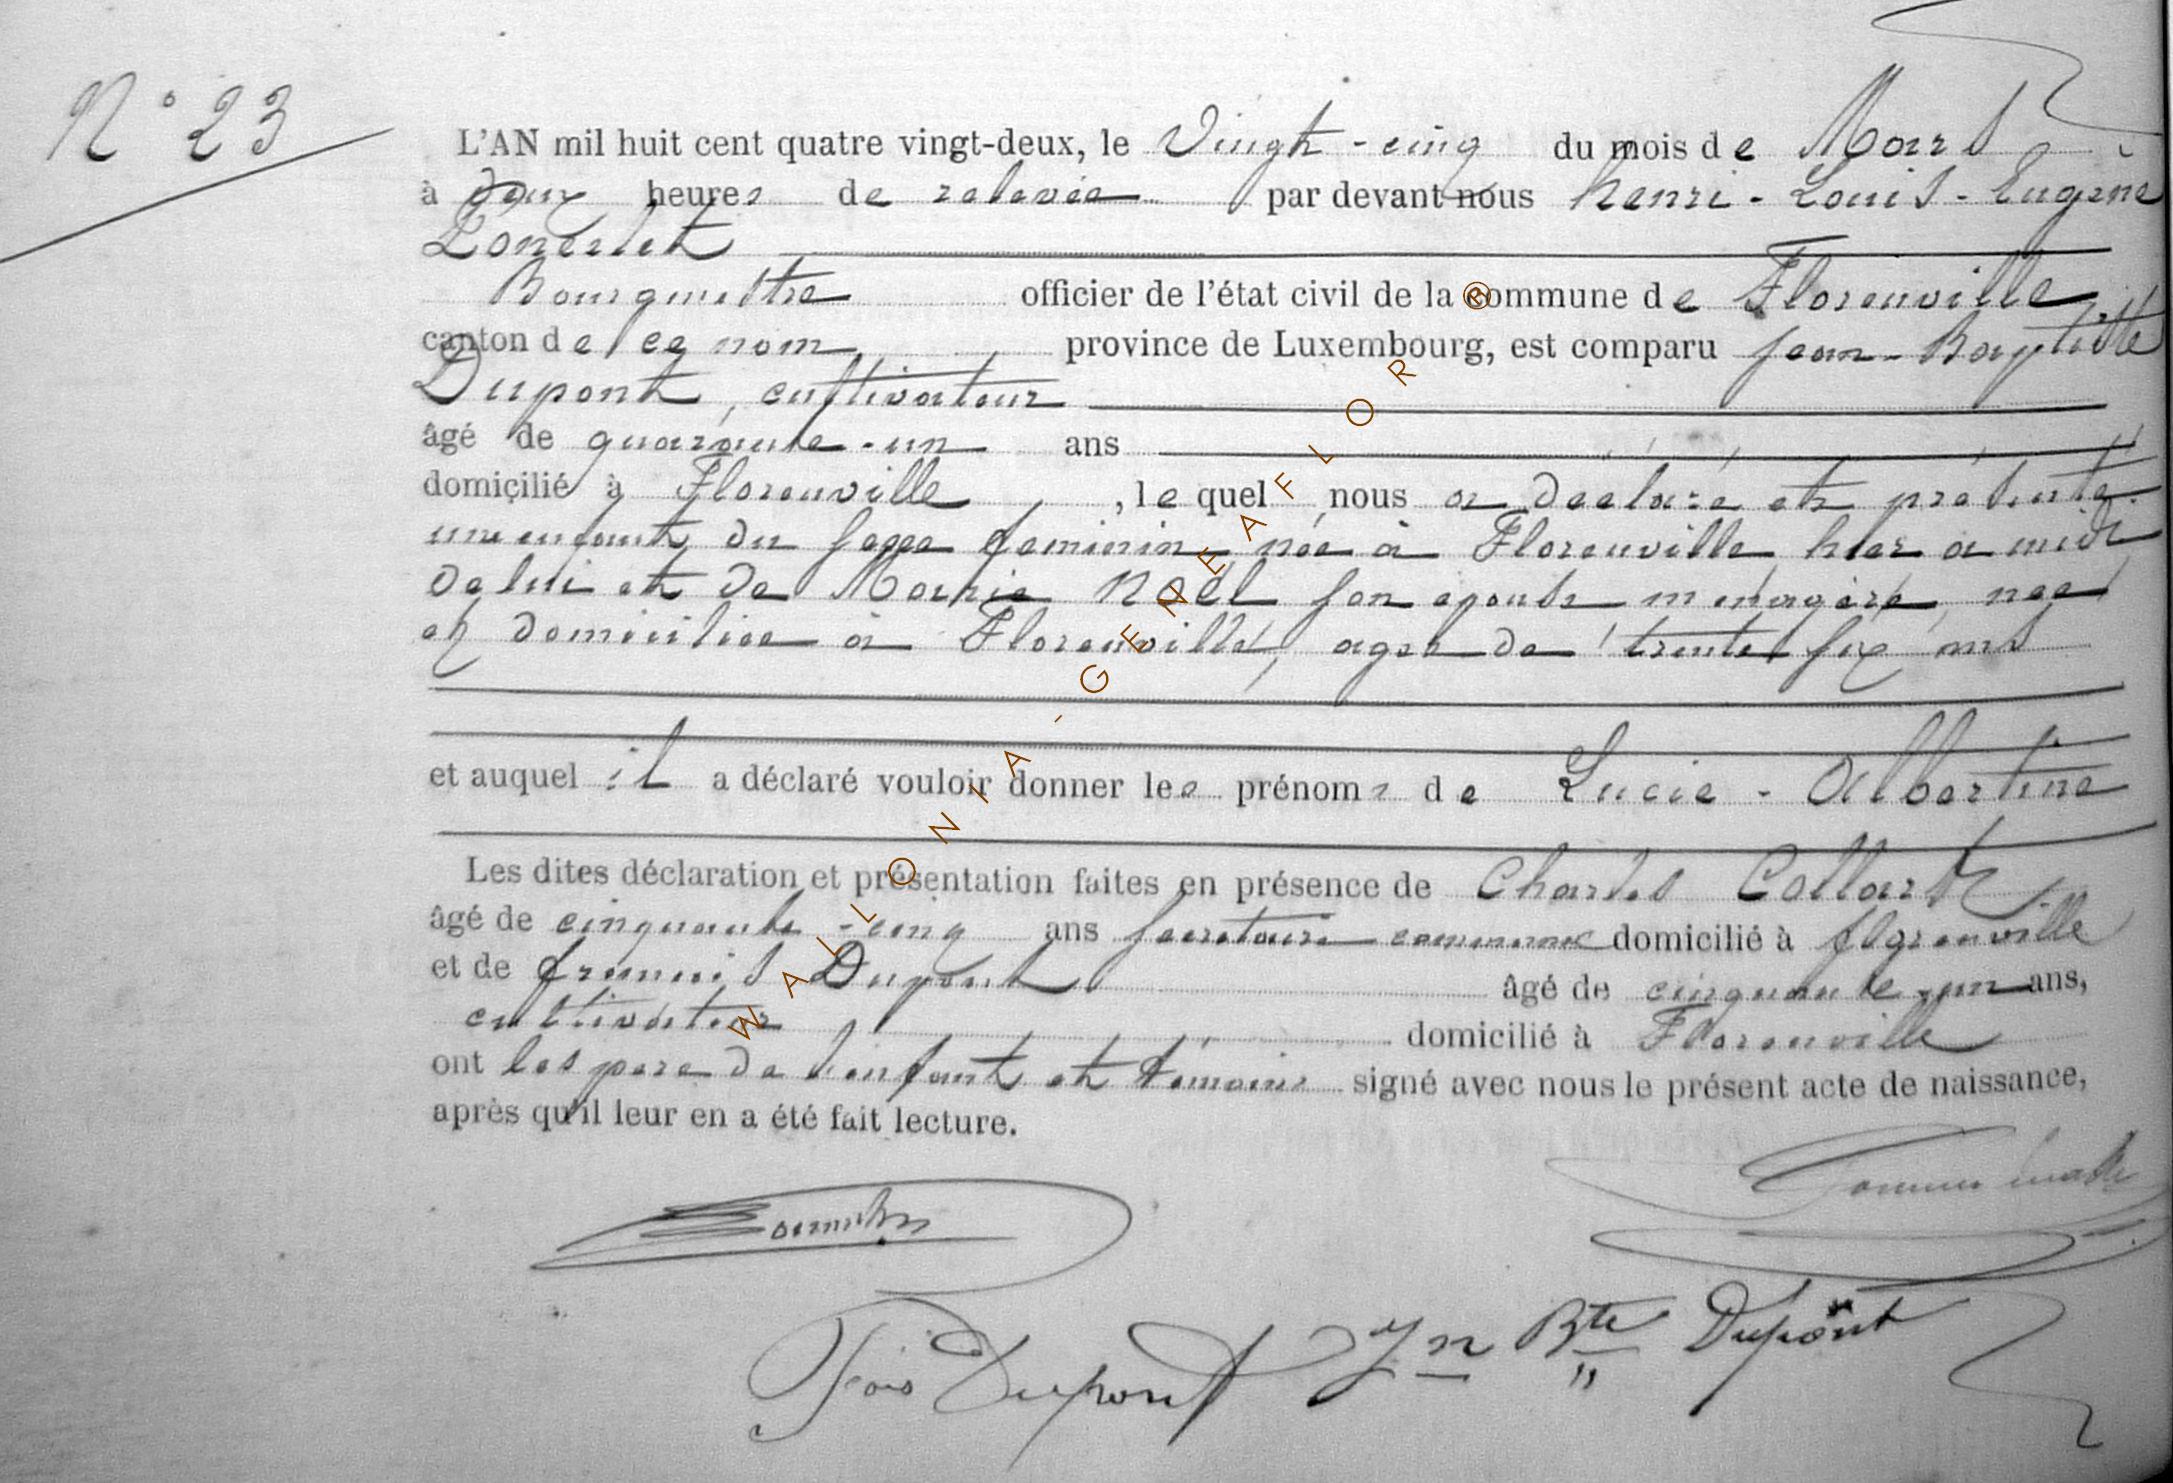 N° 23
L'AN mil huit cent quatre vingt-deux, le Vingt-cinq du mois de Mars
à deux heures de relevée par devant nous henri-Louis-Eugène
Bourgmestre officier de l'état civil de la commune de Florenville
canton de ce nom province de Luxembourg, est comparu jean-Baptiste
Dupont, cultivateur
âgé de quarante-un ans
domicilié à Florenville, lequel nous a déclaré et présenté
une enfant du sexe feminin, née à Florenville hier à midi
de lui et de Marie Noël son epouse ménagère, née
et domiciliée à Florenville, agée de trente six ans
et auquel il a déclaré vouloir donner les prénoms de Lucie-Albertine
Les dites déclaration et présentation faites en présence de Charles Collart
âgé de cinquante-cinq ans secretaire communal domicilié à florenville
et de francois Dupont âgé de cinquante-un ans,
cultivateur domicilié à Florenville
ont les pere de l'enfant et témoins signé avec nous le présent acte de naissance,
après qu'il leur en a été fait lecture.
Fçois Dupont Jn Bte Dupont
WALLONIA-GENEAFLOR ®